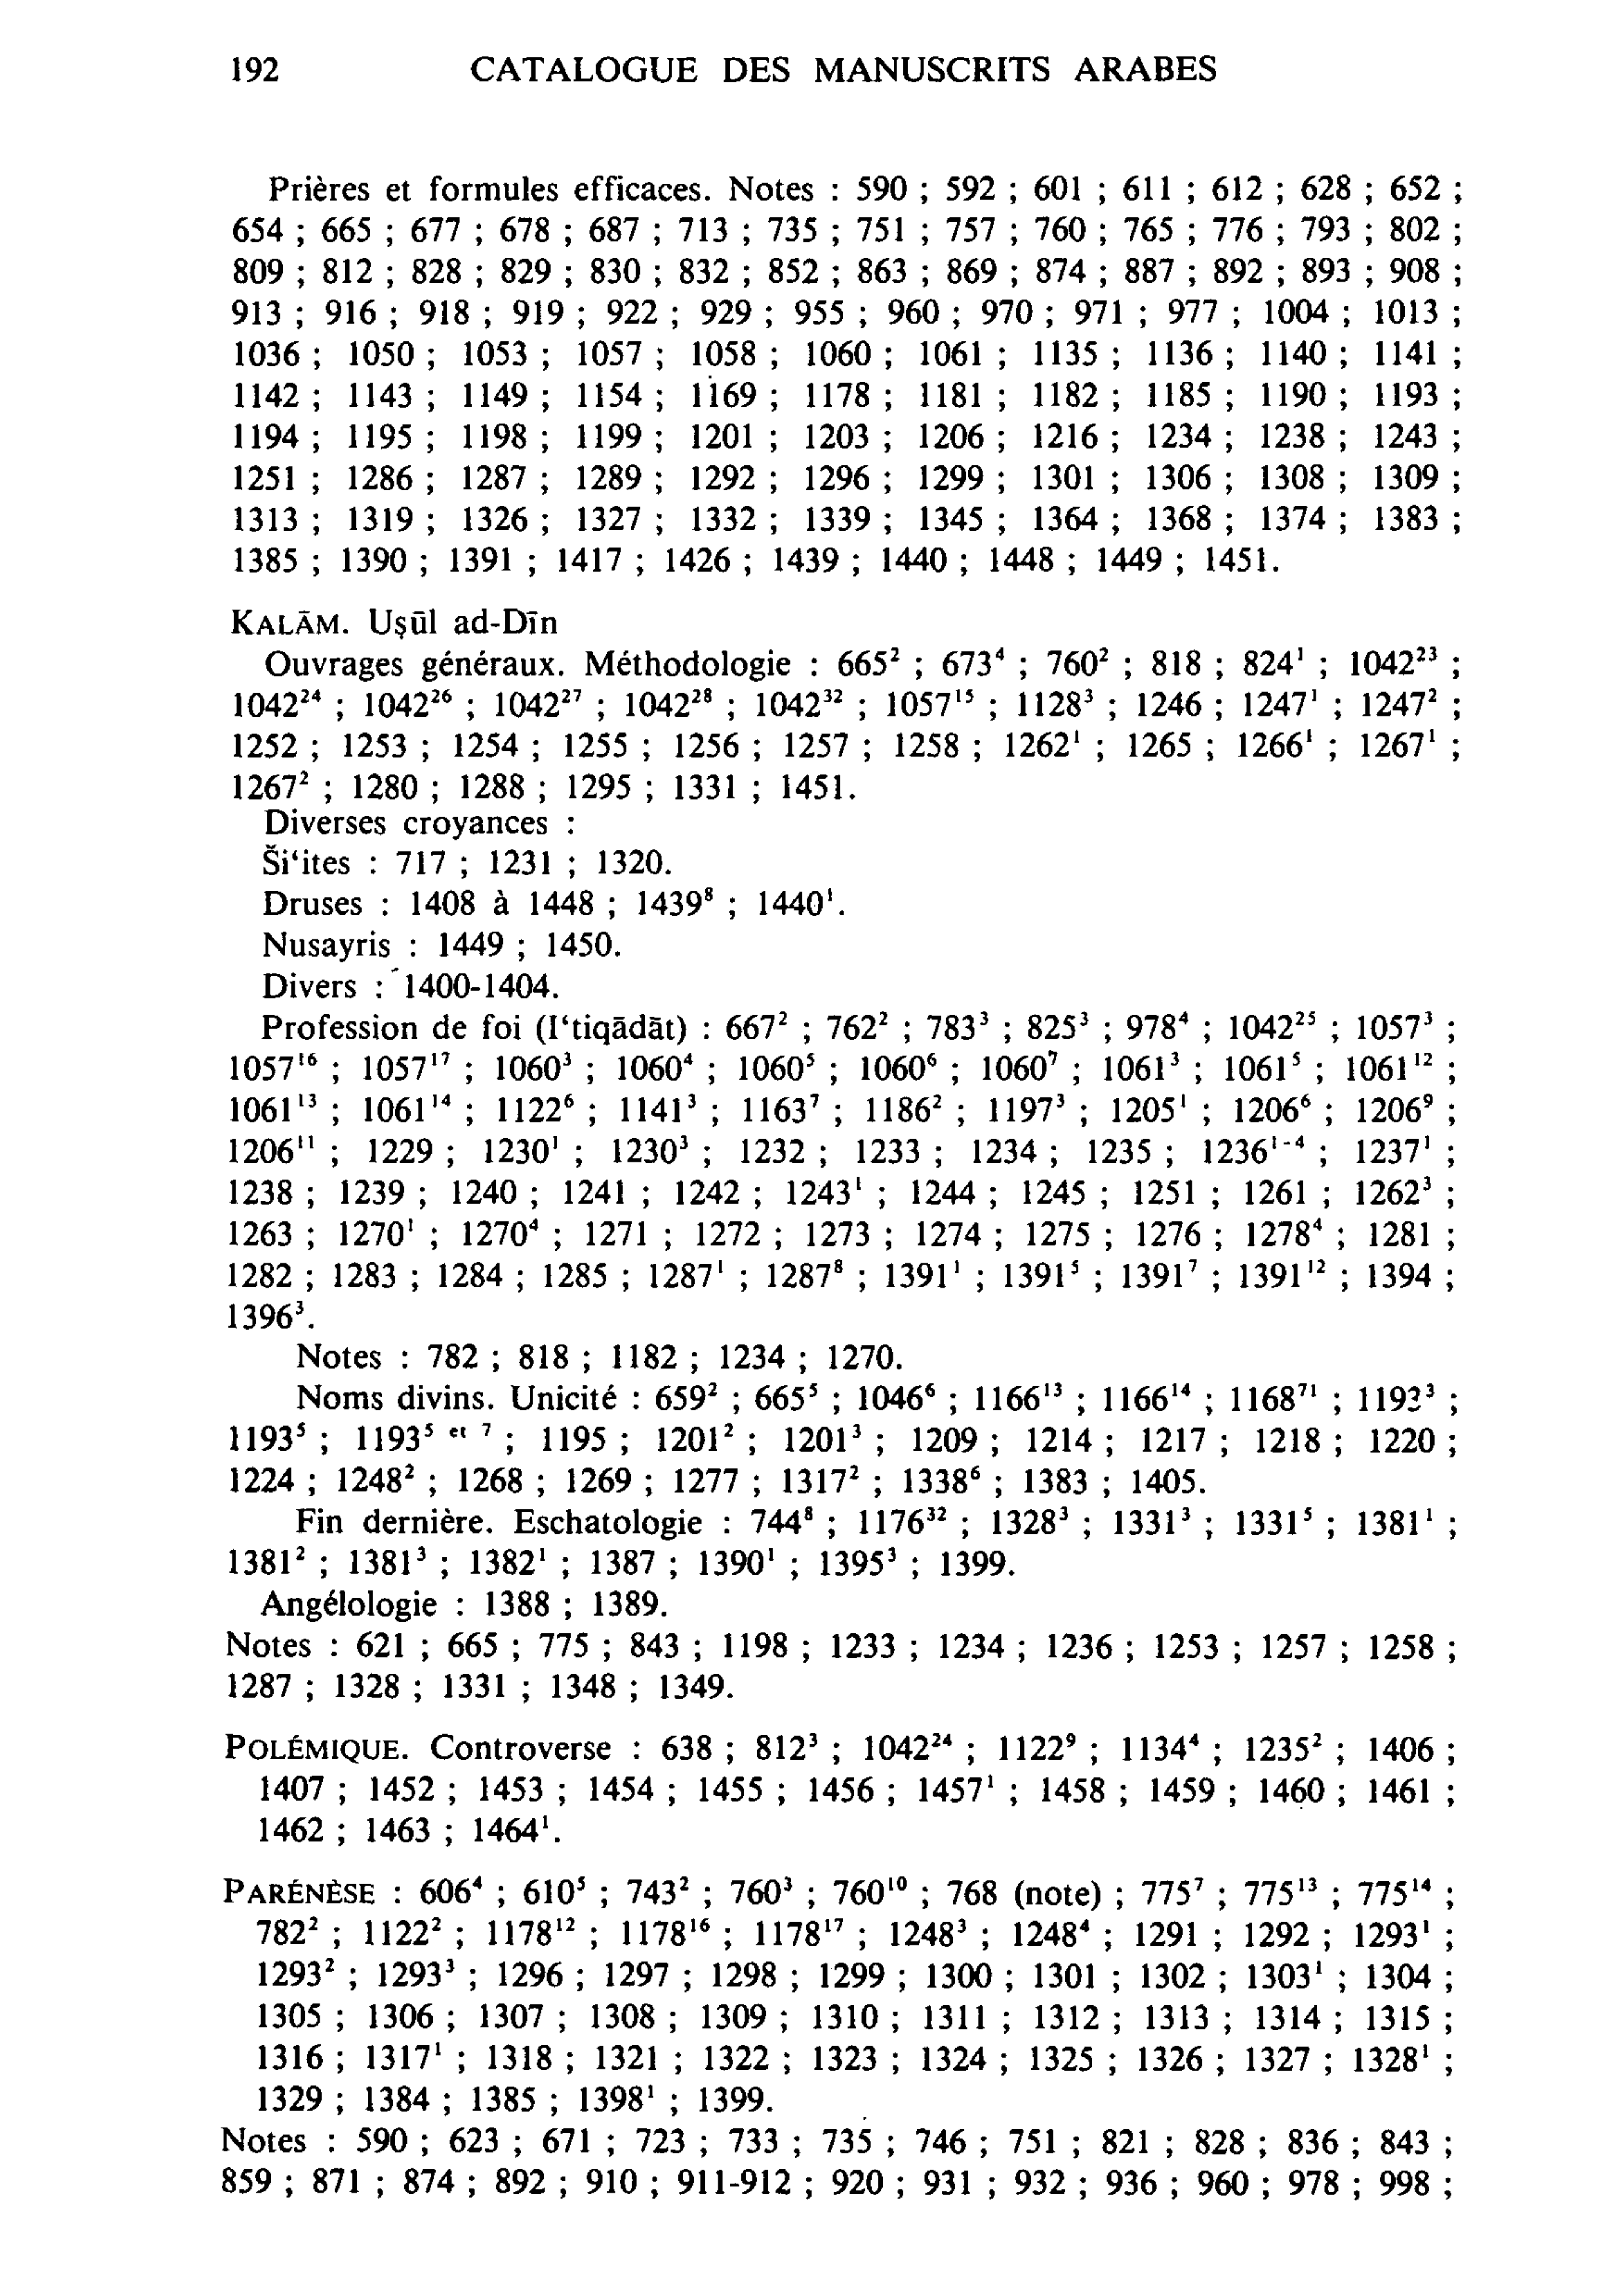 192 CATALOGUE DES MANUSCRITS ARABES
Prières et formules efficaces. Notes : 590 ; 592 ; 601 ; 611 ; 612 ; 628 ; 652 ;
654 ; 665 ; 677 ; 678 ; 687 ; 713 ; 735 ; 751 ; 757 ; 760 ; 765 ; 776 ; 793 ; 802 ;
809 ; 812 ; 828 ; 829 ; 830 ; 832 ; 852 ; 863 ; 869 ; 874 ; 887 ; 892 ; 893 ; 908 ;
913 ; 916 ; 918 ; 919 ; 922 ; 929 ; 955 ; 960 ; 970 ; 971 ; 977 ; 1004 ; 1013 ;
1036 ; 1050 ; 1053 ; 1057 ; 1058 ; 1060 ; 1061 ; 1135 ; 1136 ; 1140 ; 1141 ;
1142 ; 1143 ; 1149 ; 1154 ; 1169 ; 1178 ; 1181 ; 1182 ; 1185 ; 1190 ; 1193 ;
1194 ; 1195 ; 1198 ; 1199 ; 1201 ; 1203 ; 1206 ; 1216 ; 1234 ; 1238 ; 1243 ;
1251 ; 1286 ; 1287 ; 1289 ; 1292 ; 1296 ; 1299 ; 1301 ; 1306 ; 1308 ; 1309 ;
1313 ; 1319 ; 1326 ; 1327 ; 1332 ; 1339 ; 1345 ; 1364 ; 1368 ; 1374 ; 1383 ;
1385 ; 1390 ; 1391 ; 1417 ; 1426 ; 1439 ; 1440 ; 1448 ; 1449 ; 1451.
KALĀM. Uṣūl ad-Dīn
Ouvrages généraux. Méthodologie : 665² ; 673⁴ ; 760² ; 818 ; 824¹ ; 1042²³ ;
1042²⁴ ; 1042²⁶ ; 1042²⁷ ; 1042²⁸ ; 1042³² ; 1057¹⁵ ; 1128³ ; 1246 ; 1247¹ ; 1247² ;
1252 ; 1253 ; 1254 ; 1255 ; 1256 ; 1257 ; 1258 ; 1262¹ ; 1265 ; 1266¹ ; 1267¹ ;
1267² ; 1280 ; 1288 ; 1295 ; 1331 ; 1451.
Diverses croyances :
Ši‘ites : 717 ; 1231 ; 1320.
Druses : 1408 à 1448 ; 1439⁸ ; 1440¹.
Nusayris : 1449 ; 1450.
Divers : 1400-1404.
Profession de foi (I‘tiqādāt) : 667² ; 762² ; 783³ ; 825³ ; 978⁴ ; 1042²⁵ ; 1057³ ;
1057¹⁶ ; 1057¹⁷ ; 1060³ ; 1060⁴ ; 1060⁵ ; 1060⁶ ; 1060⁷ ; 1061³ ; 1061⁵ ; 1061¹² ;
1061¹³ ; 1061¹⁴ ; 1122⁶ ; 1141³ ; 1163⁷ ; 1186² ; 1197³ ; 1205¹ ; 1206⁶ ; 1206⁹ ;
1206¹¹ ; 1229 ; 1230¹ ; 1230³ ; 1232 ; 1233 ; 1234 ; 1235 ; 1236¹⁻⁴ ; 1237¹ ;
1238 ; 1239 ; 1240 ; 1241 ; 1242 ; 1243¹ ; 1244 ; 1245 ; 1251 ; 1261 ; 1262³ ;
1263 ; 1270¹ ; 1270⁴ ; 1271 ; 1272 ; 1273 ; 1274 ; 1275 ; 1276 ; 1278⁴ ; 1281 ;
1282 ; 1283 ; 1284 ; 1285 ; 1287¹ ; 1287⁸ ; 1391¹ ; 1391⁵ ; 1391⁷ ; 1391¹² ; 1394 ;
1396³.
Notes : 782 ; 818 ; 1182 ; 1234 ; 1270.
Noms divins. Unicité : 659² ; 665⁵ ; 1046⁶ ; 1166¹³ ; 1166¹⁴ ; 1168⁷¹ ;
1193⁵ ; 1193⁵ ᵉᵗ ⁷ ; 1195 ; 1201² ; 1201³ ; 1209 ; 1214 ; 1217 ; 1218 ; 1220 ;
1224 ; 1248² ; 1268 ; 1269 ; 1277 ; 1317² ; 1338⁶ ; 1383 ; 1405.
Fin dernière. Eschatologie : 744⁸ ; 1176³² ; 1328³ ; 1331³ ; 1331⁵ ; 1381¹ ;
1381² ; 1381³ ; 1382¹ ; 1387 ; 1390¹ ; 1395³ ; 1399.
Angélologie : 1388 ; 1389.
Notes : 621 ; 665 ; 775 ; 843 ; 1198 ; 1233 ; 1234 ; 1236 ; 1253 ; 1257 ; 1258 ;
1287 ; 1328 ; 1331 ; 1348 ; 1349.
POLÉMIQUE. Controverse : 638 ; 812³ ; 1042²⁴ ; 1122⁹ ; 1134⁴ ; 1235² ; 1406 ;
1407 ; 1452 ; 1453 ; 1454 ; 1455 ; 1456 ; 1457¹ ; 1458 ; 1459 ; 1460 ; 1461 ;
1462 ; 1463 ; 1464¹.
PARÉNÈSE : 606⁴ ; 610⁵ ; 743² ; 760³ ; 760¹⁰ ; 768 (note) ; 775⁷ ; 775¹³ ; 775¹⁴ ;
782² ; 1122² ; 1178¹² ; 1178¹⁶ ; 1178¹⁷ ; 1248³ ; 1248⁴ ; 1291 ; 1292 ; 1293¹ ;
1293² ; 1293³ ; 1296 ; 1297 ; 1298 ; 1299 ; 1300 ; 1301 ; 1302 ; 1303¹ ; 1304 ;
1305 ; 1306 ; 1307 ; 1308 ; 1309 ; 1310 ; 1311 ; 1312 ; 1313 ; 1314 ; 1315 ;
1316 ; 1317¹ ; 1318 ; 1321 ; 1322 ; 1323 ; 1324 ; 1325 ; 1326 ; 1327 ; 1328¹ ;
1329 ; 1384 ; 1385 ; 1398¹ ; 1399.
Notes : 590 ; 623 ; 671 ; 723 ; 733 ; 735 ; 746 ; 751 ; 821 ; 828 ; 836 ; 843 ;
859 ; 871 ; 874 ; 892 ; 910 ; 911-912 ; 920 ; 931 ; 932 ; 936 ; 960 ; 978 ; 998 ;